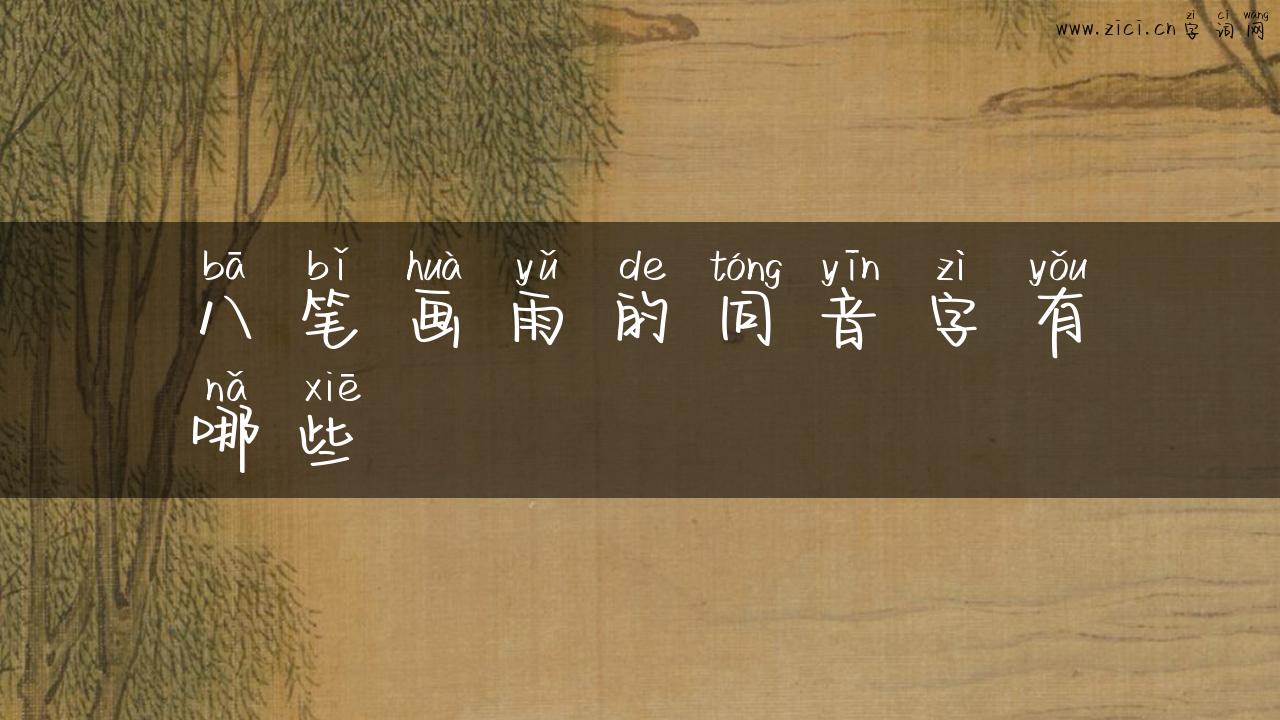 zì cí wǎng
www.zici.cn 字词网
bā bǐ huà yǔ de tóng yīn zì yǒu
八笔画雨的同音字有
nǎ xiē
哪些